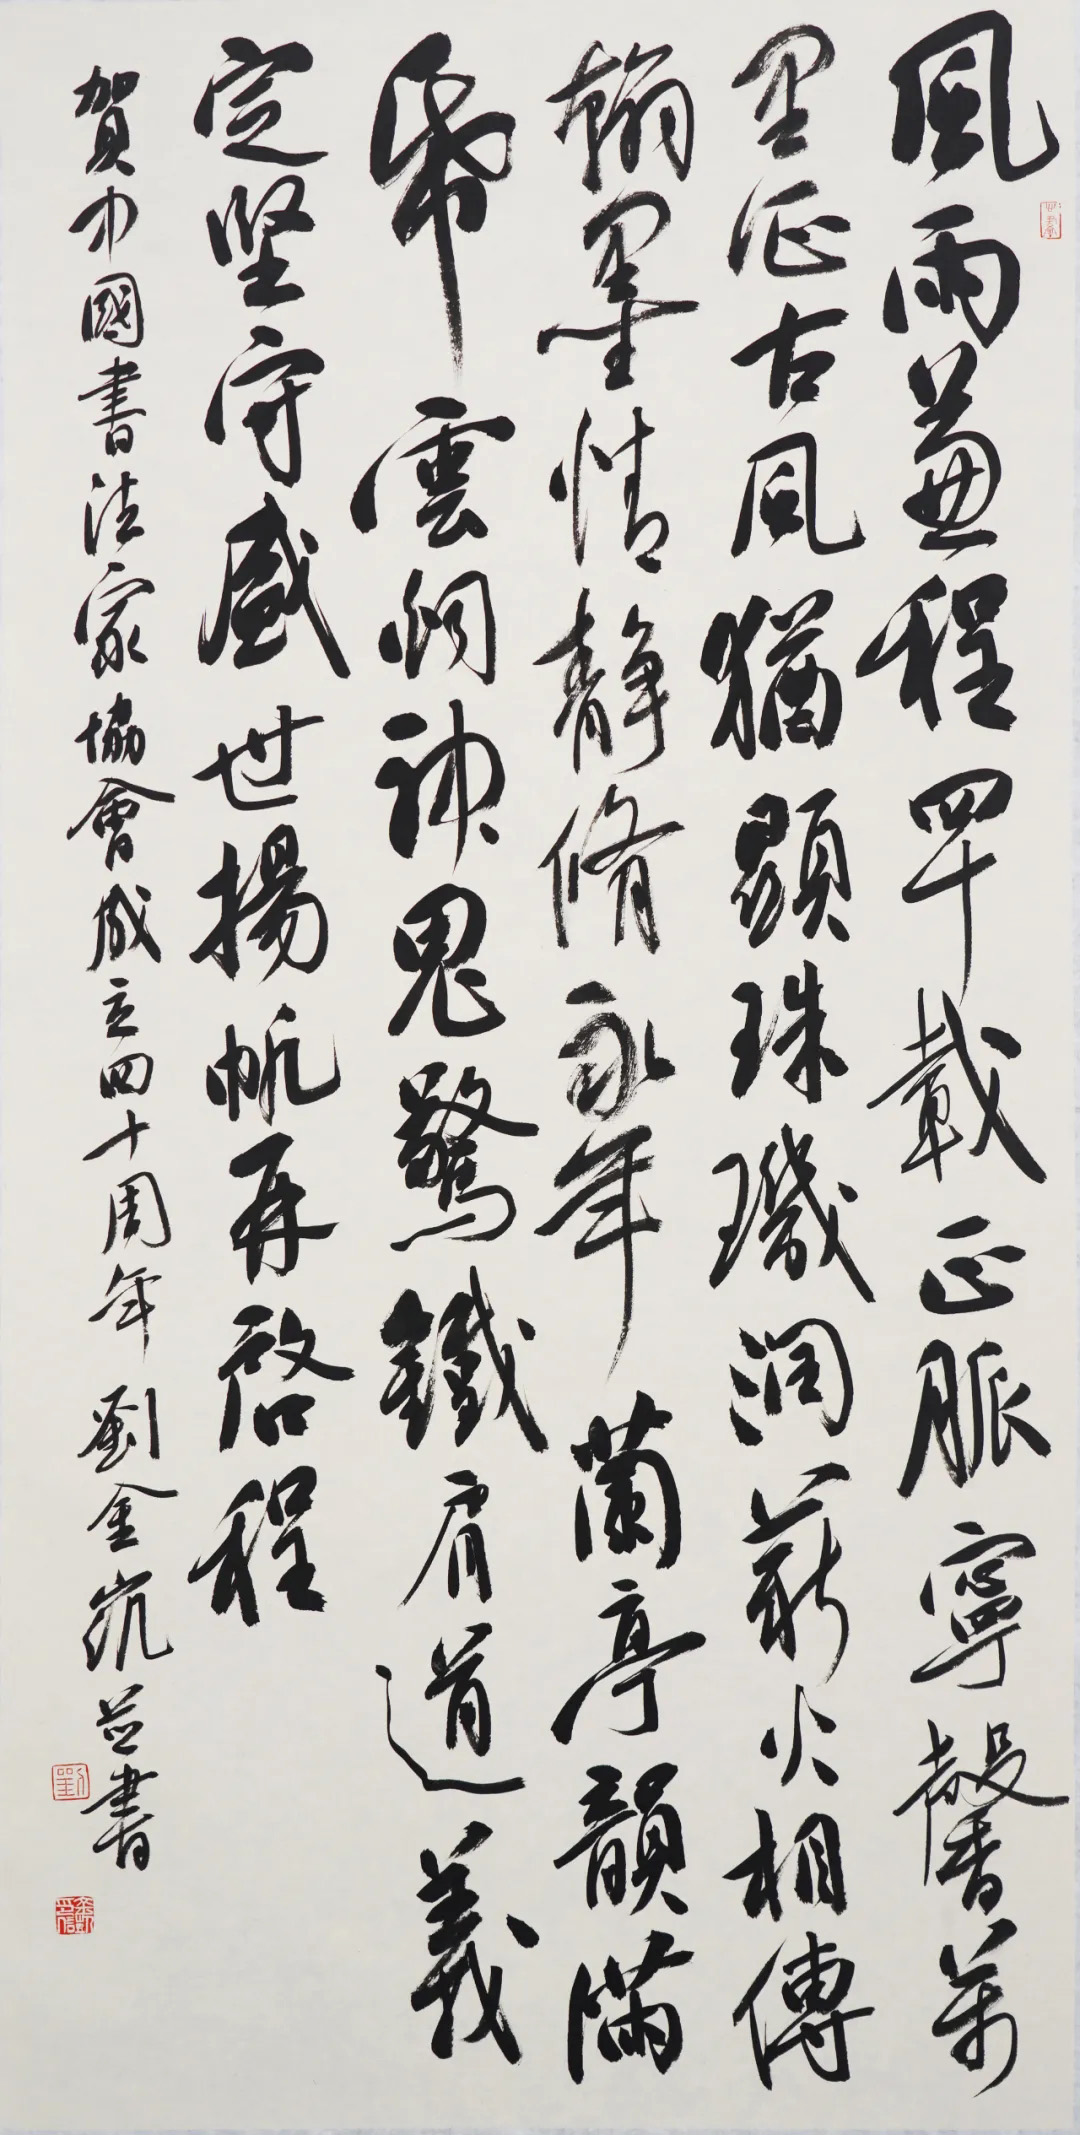 風雨兼程四十載正脈寧馨萬
里征古風猶顯珠璣潤薪火相傳
翰墨情靜脩永年蘭亭韻滿
紙雲烟神鬼驚鐵肩道義
定堅守盛世揚帆再啓程
賀中國書法家協會成立四十周年 劉金凱並書